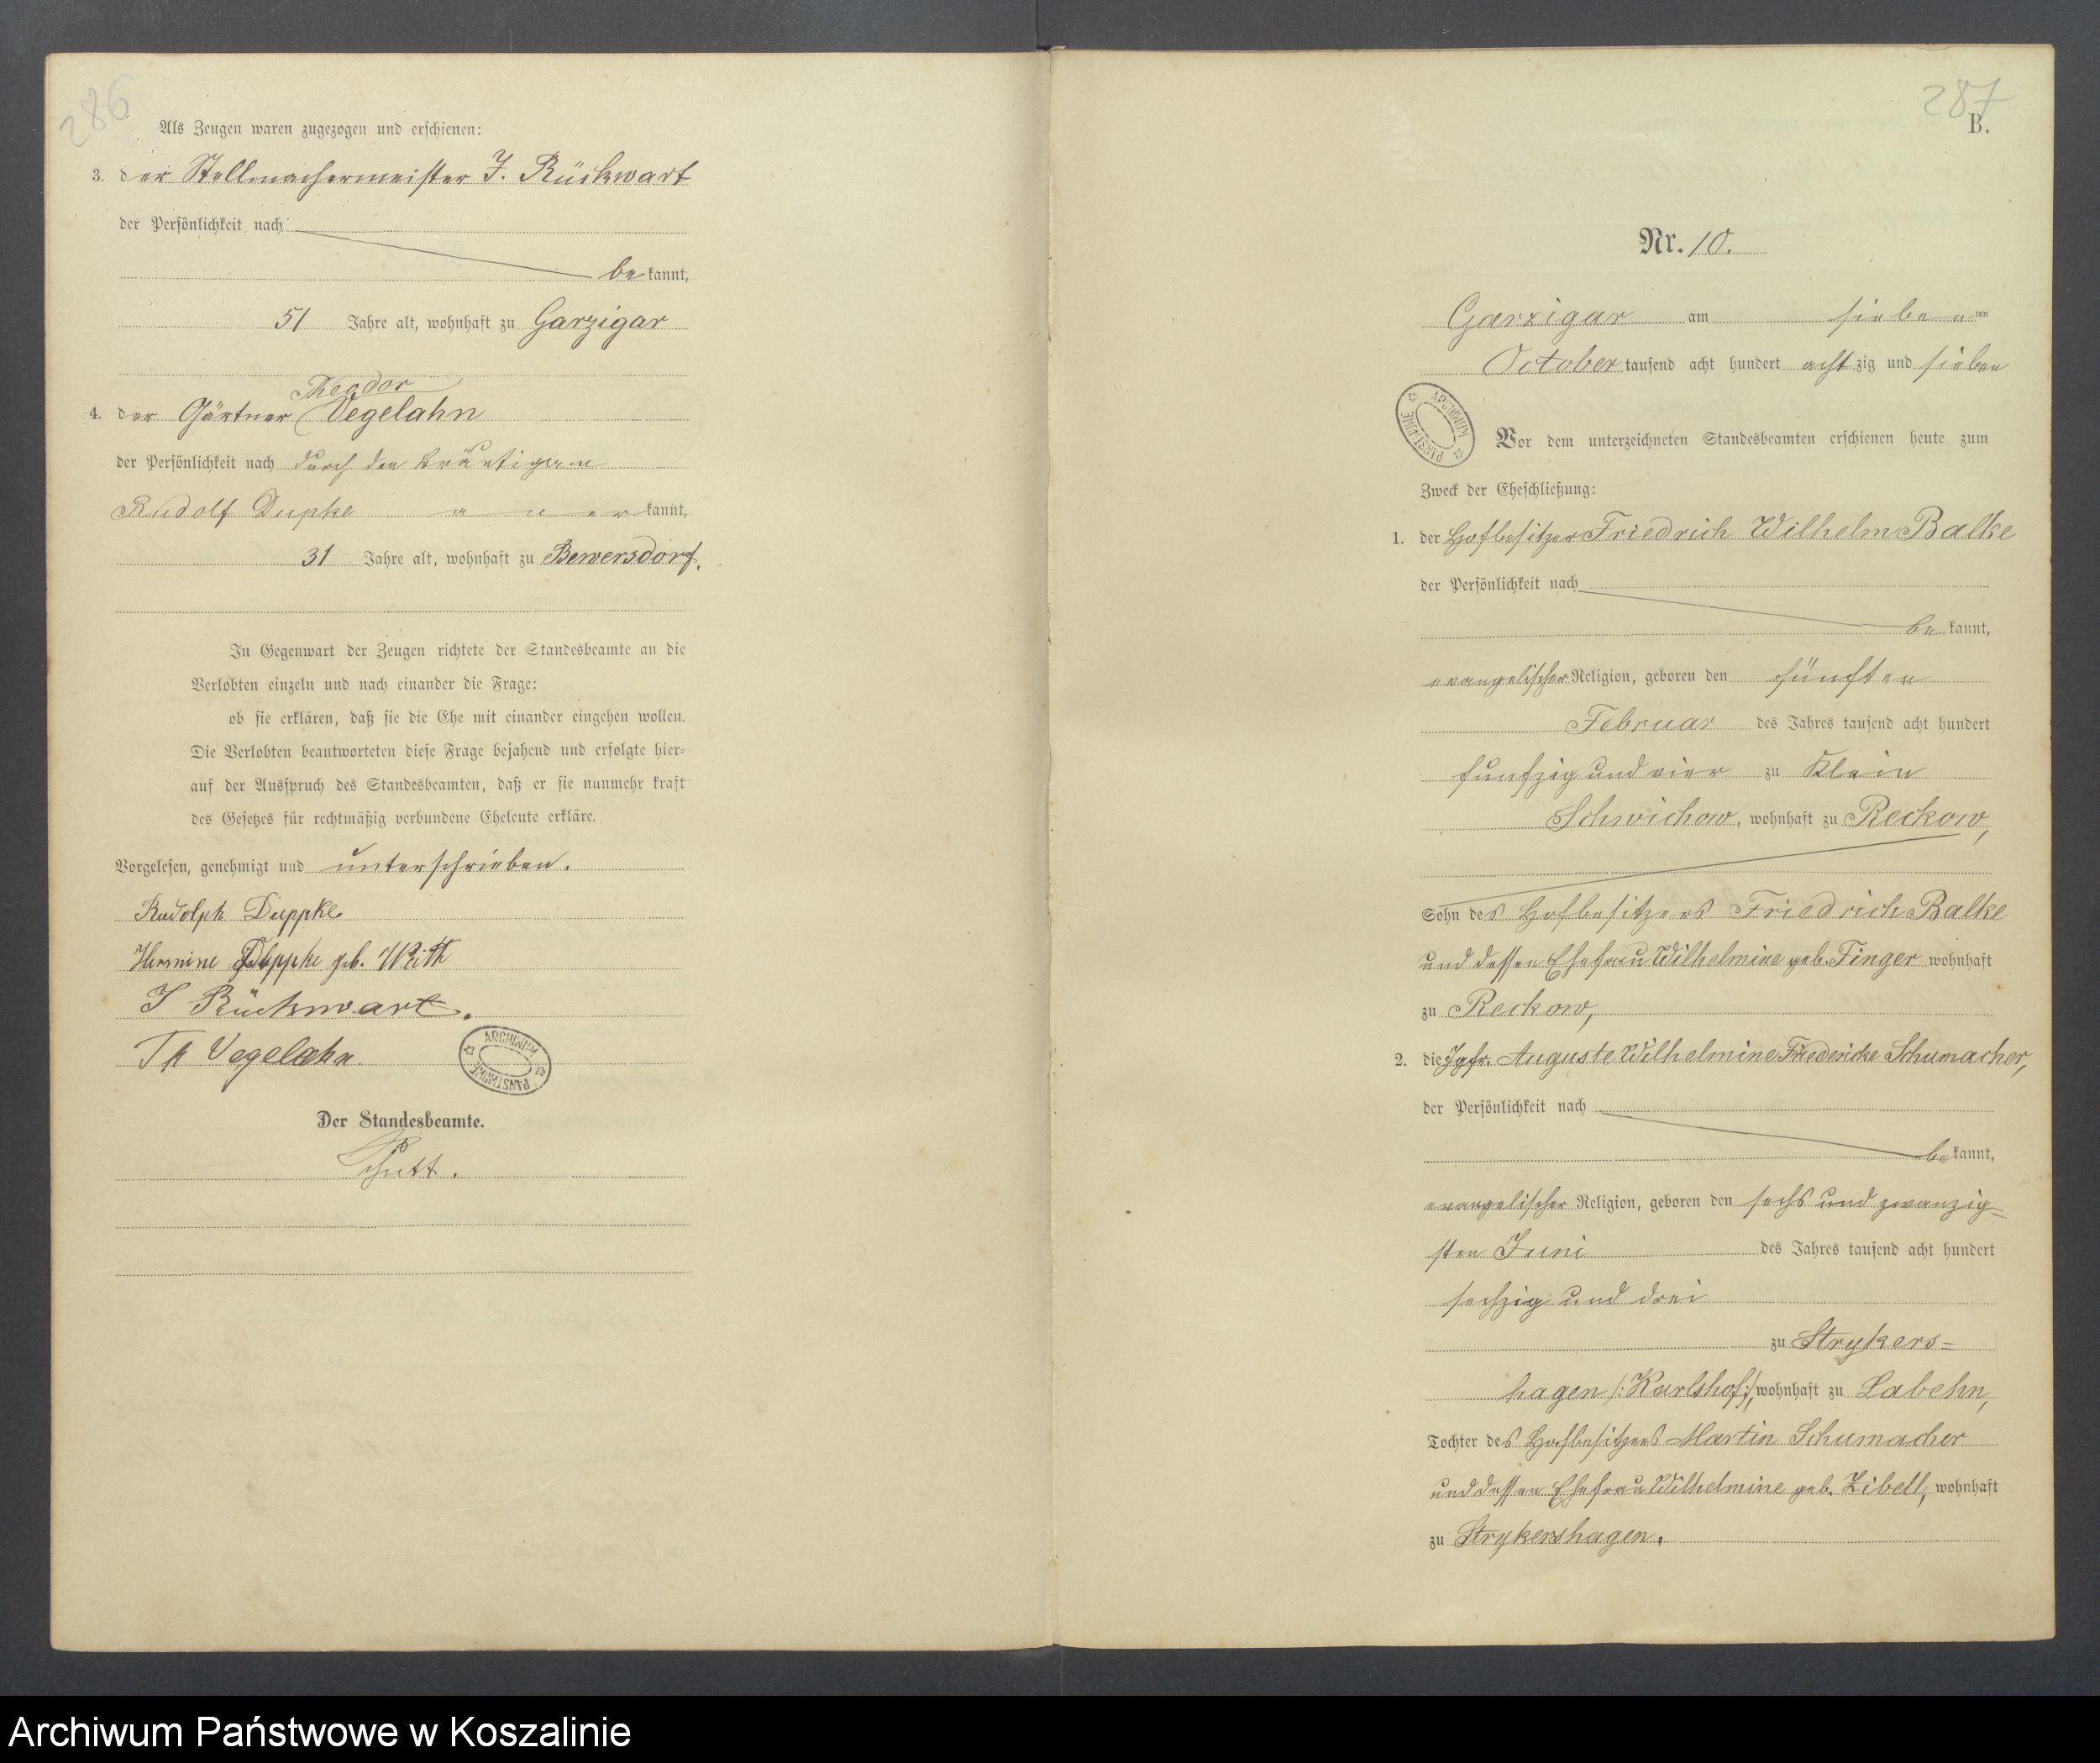 286
Als Zeugen waren zugezogen und erschienen:
3. der Stellmachermeister J. Rückwart
der Persönlichkeit nach
be kannt,
51 Jahre alt, wohnhaft zu Garzigar
Theodor
4. der Gärtner Vegelahn
der Persönlichkeit nach durch den Bräutigam
Rudolf Dupke a n er kannt,
31 Jahre alt, wohnhaft zu Bewersdorf.
In Gegenwart der Zeugen richtete der Standesbeamte an die
Verlobten einzeln und nach einander die Frage:
ob sie erklären, daß sie die Ehe mit einander eingehen wollen.
Die Verlobten beantworteten diese Frage bejahend und erfolgte hier-
auf der Ausspruch des Standesbeamten, daß er sie nunmehr kraft
des Gesetzes für rechtmäßig verbundene Eheleute erkläre.
Vorgelesen, genehmigt und unterschrieben.
Rudolph Duppke
Hermine Duppke geb. Witt
J Rückwart.
Th Vegelahn.
ARCHIWUM PAŃSTWOWE
Der Standesbeamte.
287
B.
Nr. 10.
Garzigar am sieben ten
October tausend acht hundert acht zig und sieben
ARCHIWUM PAŃSTWOWE
Vor dem unterzeichneten Standesbeamten erschienen heute zum
Zweck der Eheschließung:
1. der Hofbesitzer Friedrich Wilhelm Balke
der Persönlichkeit nach
be kannt,
evangelischer Religion, geboren den fünften
Februar des Jahres tausend acht hundert
funfzig und vier zu Klein
Schwichow, wohnhaft zu Reckow,
Sohn des Hofbesitzers Friedrich Balke
und dessen Ehefrau Wilhelmine geb. Finger wohnhaft
zu Reckow,
2. die Jgfr. Auguste Wilhelmine Friedericke Schumacher,
der Persönlichkeit nach
be kannt,
evangelischer Religion, geboren den sechs und zwanzig=
sten Juni des Jahres tausend acht hundert
sechzig und drei
zu Strykers=
hagen /:Karlshof:/, wohnhaft zu Labehn,
Tochter des Hofbesitzers Martin Schumacher
und dessen Ehefrau Wilhelmine geb. Zibell, wohnhaft
zu Strykershagen.
Archiwum Państwowe w Koszalinie